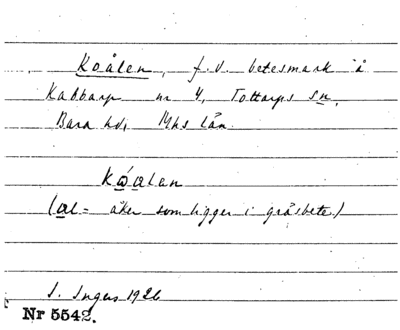 Koålen, f.d. betesmark å
Kabbarp nr 4, Tottarps sn,
Bara hd, Mhs län.
Kώalan
(al = åker som ligger i gräsbete)
S. Ingers 1926
Nr 5542.